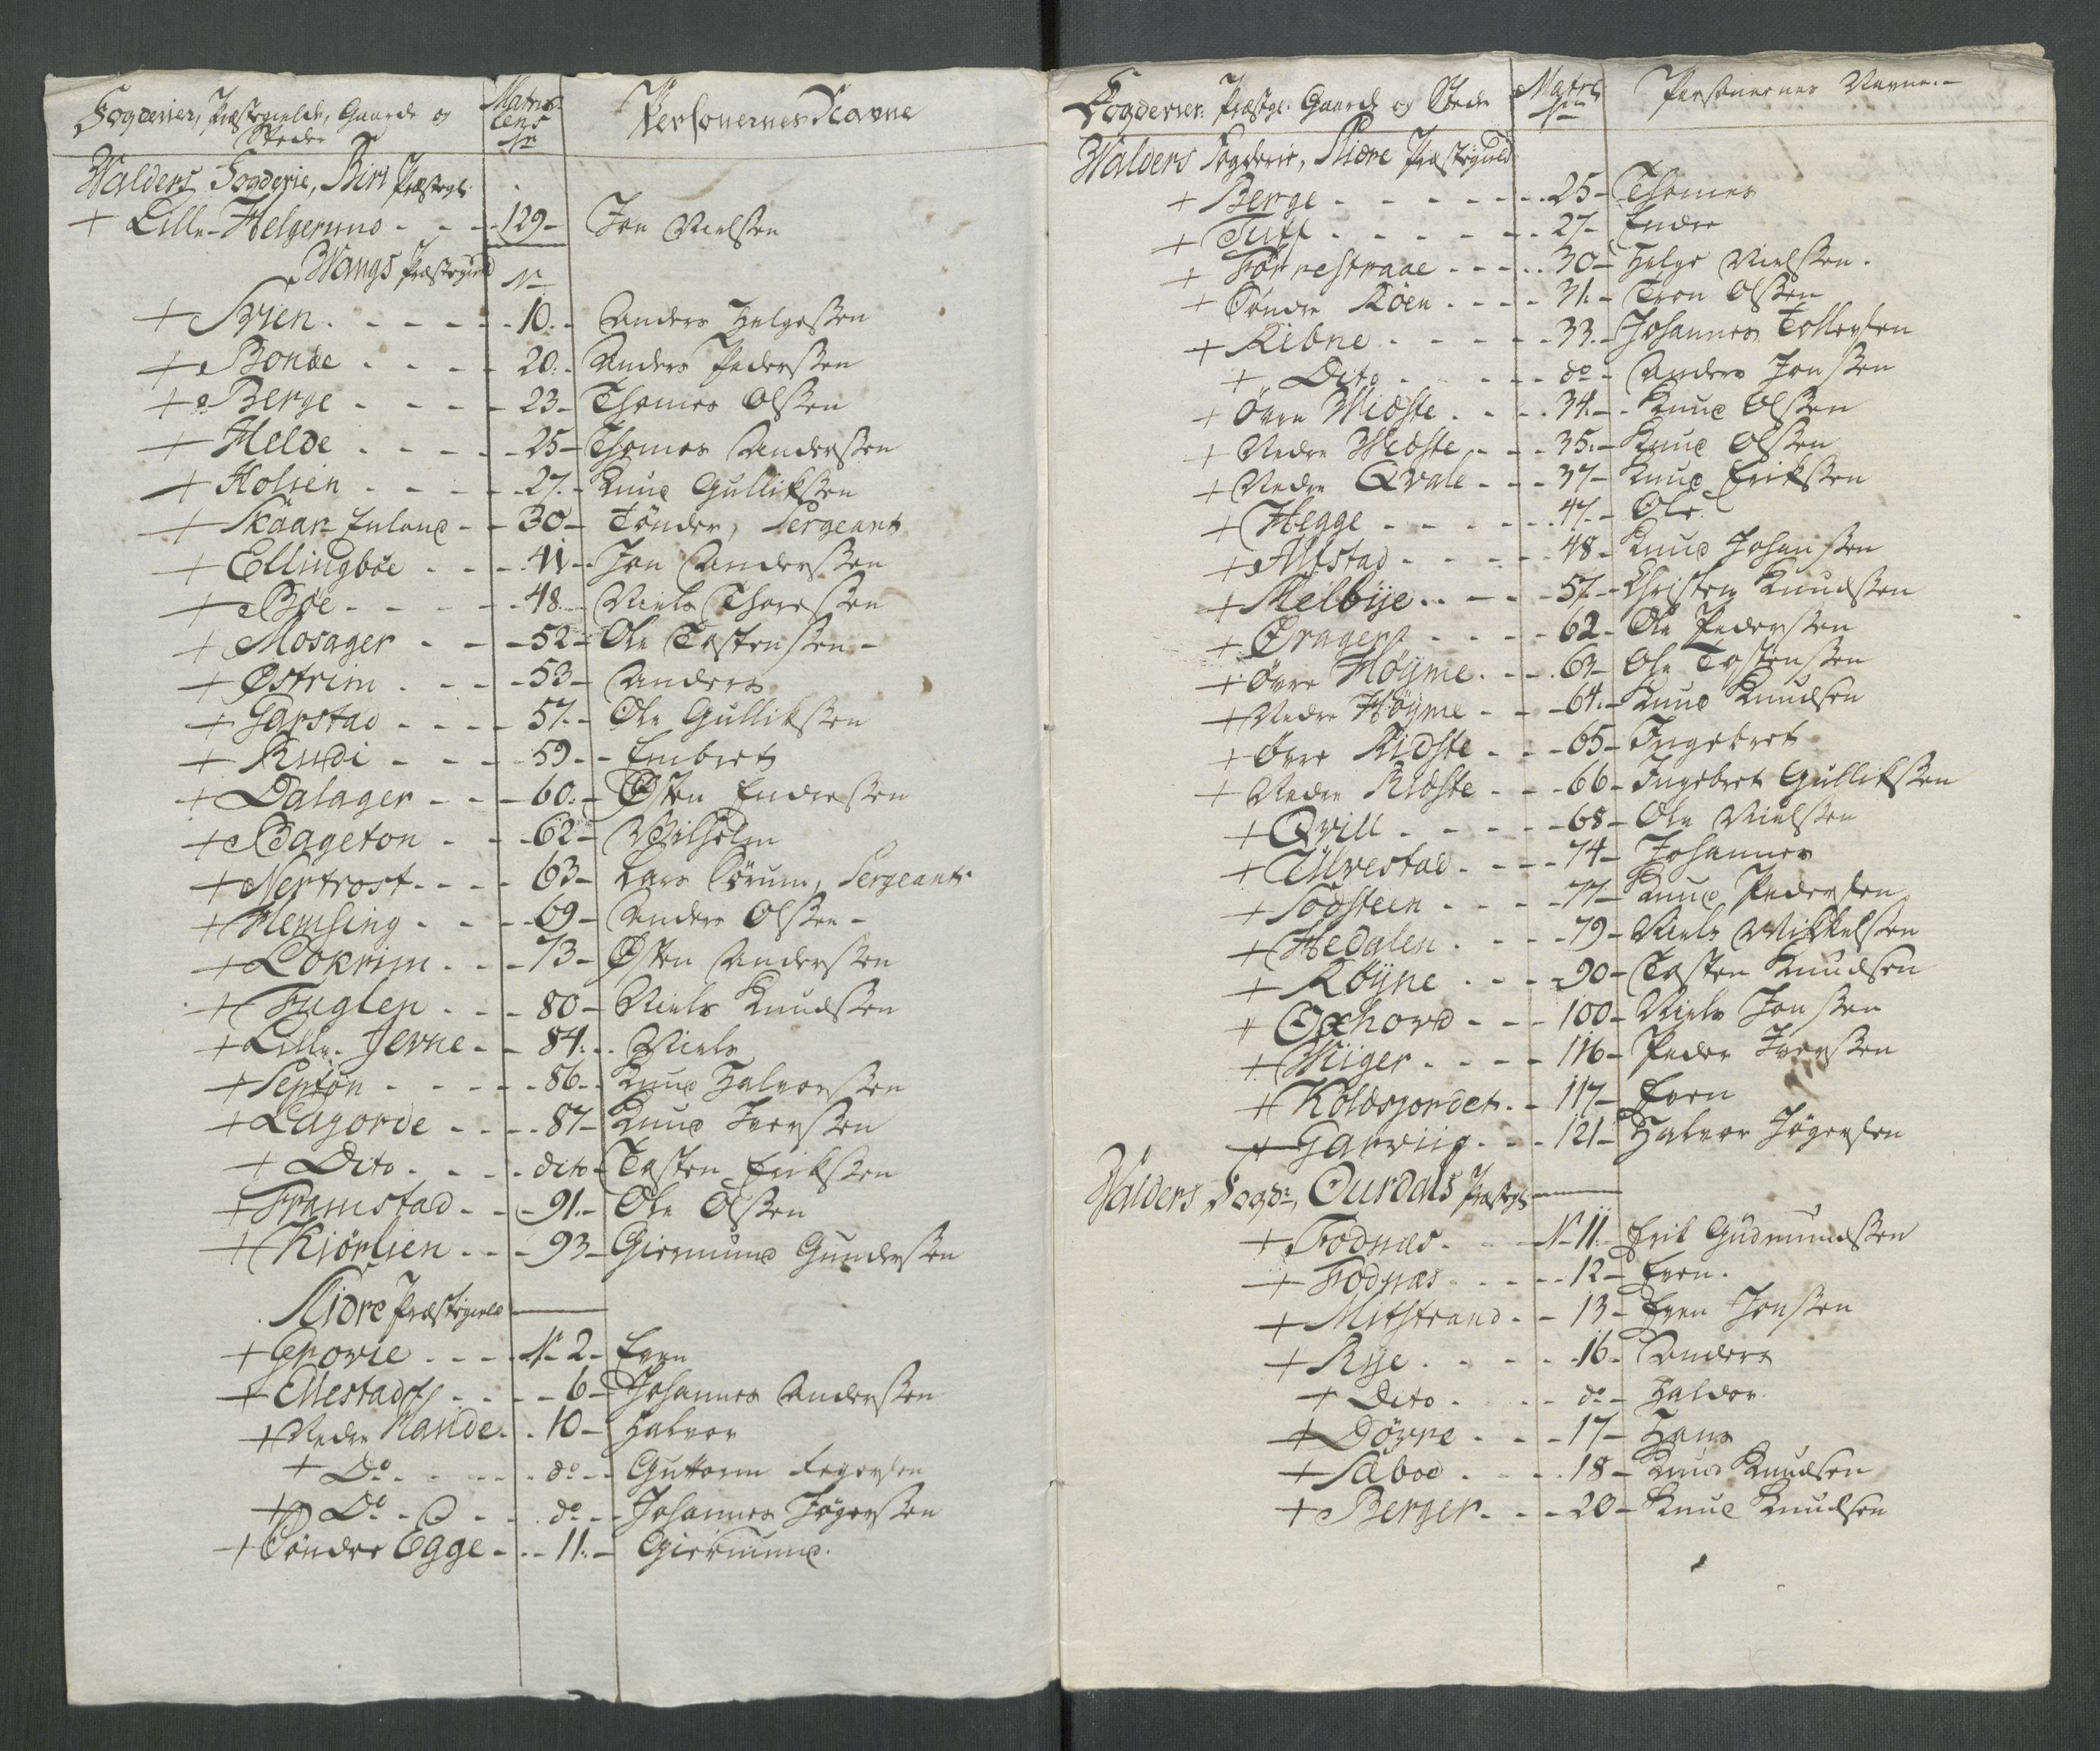 Fogderier, Præstegielde, Gaarde og Steder | Matriculens No | Personernes Navne
Walders Fogderie, Biri Præstegl.
+ Lille-Helgerud - - - 129 - Jon Nielsen
Wangs Præstegield No
+ Hvien - - - 10 - Anders Helgesen
+ Bonde - - - 20 - Anders Pedersen
+ Berge - - - 23 - Thomes Olsen
+ Helde - - - 25 - Thomes Andersen
+ Holien - - - 27 - Knud Gulliksen
+ Skaar Enland - - 30 - Tønder, Sergeant
+ Ellingbøe - - - 41 - Jon Andersen
+ Bøe - - - 48 - Niels Thoresen
+ Mosager - - 52 - Ole Tostensen -
+ Østrim - - - 53 - Anders
+ Garstad - - - 57 - Ole Gulliksen
+ Rudi - - - 59 - Embret
+ Dalager - - - 60 - Østen Endresen
+ Bageton - - - 62 - Wilhelm
+ Nertrost - - - 63 - Lars Sørum, Sergeant
+ Hemsing - - - 69 - Anders Olsen -
+ Lokrim - - - 73 - Østen Andersen
+ Fuglen - - - 80 - Niels Knudsen
+ Lille-Jevne - - 84 - Niels
+ Senton - - - 86 - Knud Halvorsen
+ Lagorde - - - 87 - Knud Iversen
+ Dito - - - dito - Tosten Eriksen
+ Framstad - - - 91 - Ole Olsen
+ Kiørlien - - - 93 - Giermund Gundersen
Slidre Præstegield
+ Grovie - - - No 2 - Even
+ Mestad - - - 6 - Johannes Andersen
+ Nedre Hande - 10 - Halvor
+ Do - - - do - Guttorm
+ Do - - - do - Johannes Jøgersen
+ Søndre Egge - - 11 - Giermund.
Fogderier. Præstgl. Gaarde og Steder | Matrl. No | Personernes Navne. -
Walders Fogderie, Slidre Præstegield
+ Berge - - - 25 - Thomes
+ Tuff - - - 27 - Endre
+ Førrestraae - - - 30 - Helge Nielsen.
+ Søndre Køen - - - 31 - Tron Olsen
+ Rebne - - - 33 - Johannes Tollevsen
+ Dito - - - do - Anders Jonsen
+ Øvre Widste - - - 34 - Knud Olsen
+ Nedre Wedste - - - 35 - Knud Olsen
+ Nedre Qvale - - - 37 - Knud Eriksen
+ Hegge - - - 47 - Ole.
+ Alfstad - - - 48 - Knud Johansen
+ Melbye - - - 57 - Christen Knudsen
+ Øragers - - - 62 - Ole Pedersen
+ Øvre Høyme - - - 63 - Ole Tostensen
+ Nedre Høyme - - - 64 - Knud Knudsen
+ Øvre Ridste - - - 65 - Ingebret
+ Nedre Ridste - - - 66 - Ingebret Gulliksen
+ Qvill - - - 68 - Ole Nielsen
+ Ulvestad - - - 74 - Johannes
+ Todsteen - - - 77 - Knud Pedersen
+ Hedalen - - - 79 - Niels Mikkelsen
+ Røyne - - - 90 - Tosten Knudsen
+ Oxhovd - - - 100 - Niels Jonsen
+ Wiiger - - - 116 - Peder Iversen
+ Koldsjordet - 117 - Even
+ Garviig - - - 121 - Halvor Jøgersen
Walders Fogdr. Ourdals Præstgl.
+ Fodnæs - - - No 11 - Erik Gudmundsen
+ Fodnæs - - - 12 - Even.
+ Mitstrand - - 13 - Even Jonsen
+ Rye - - - 16 - Anders
+ Dito - - - do - Haldor.
+ Døyre - - - 17 - Hans
+ Saboe - - - 18 - Knud Knudsen
+ Berger - - - 20 - Knud Knudsen